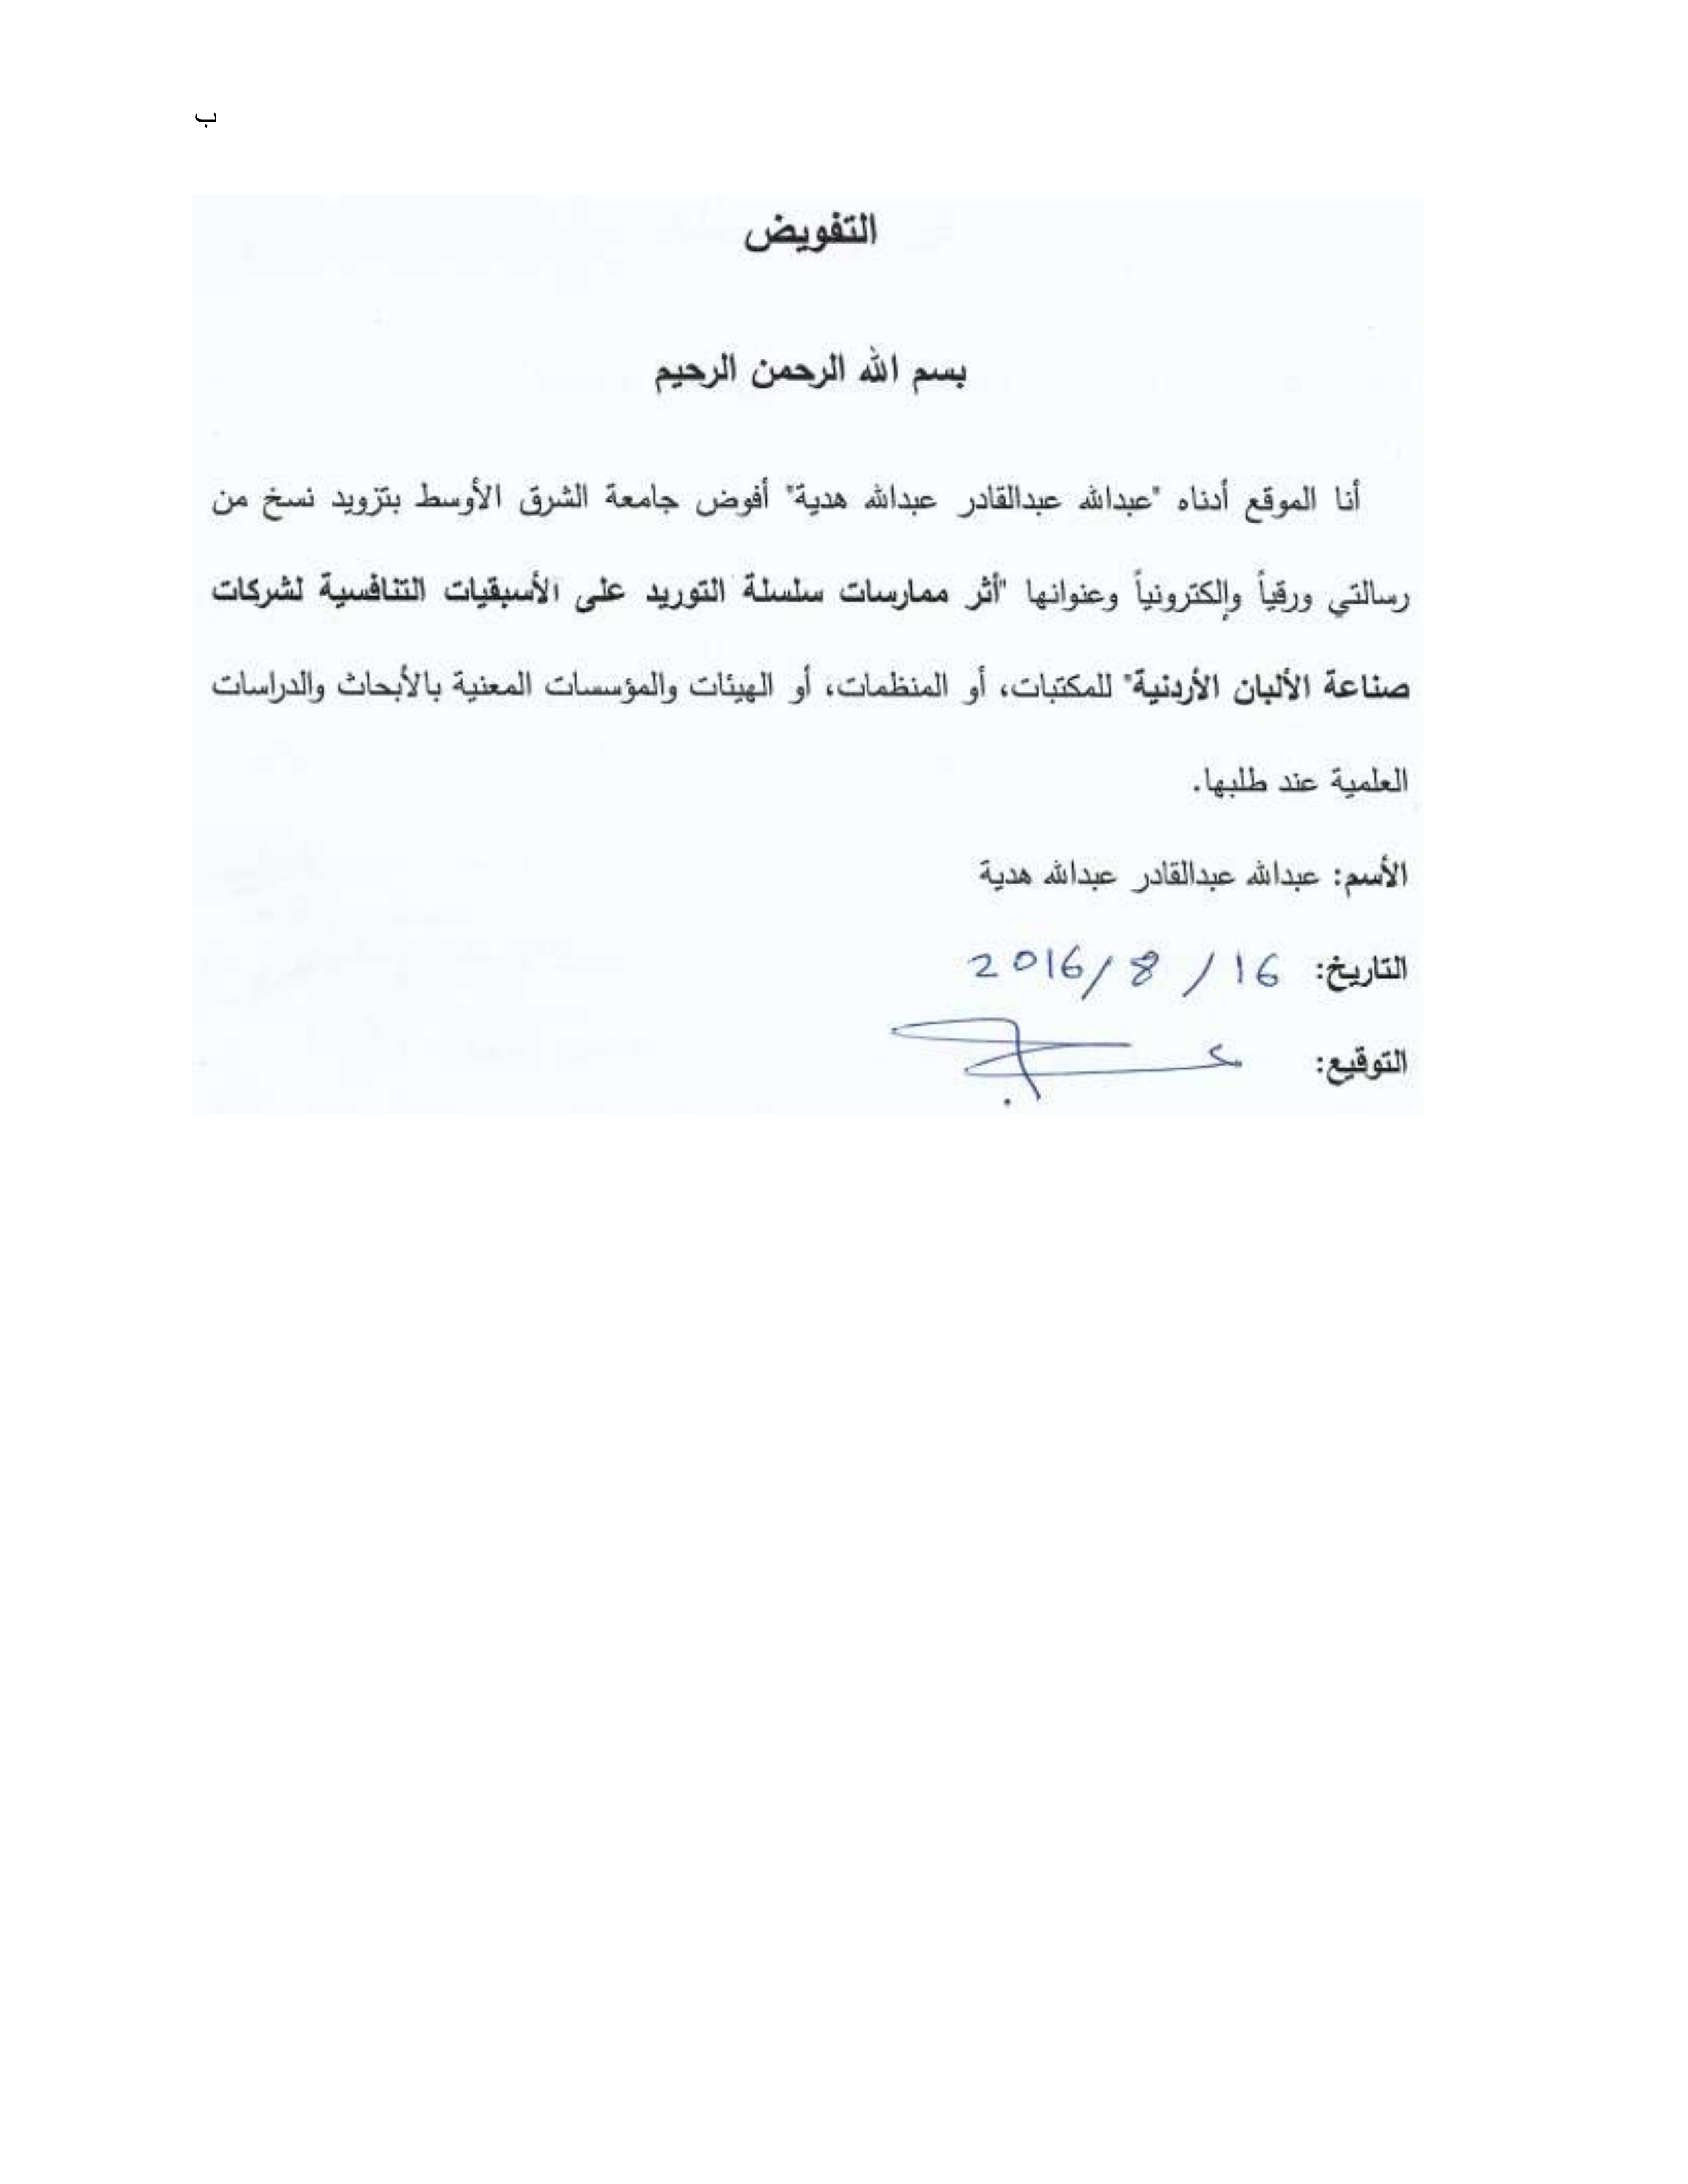 ب
التفويض
بسم الله الرحمن الرحيم
أنا الموقع أدناه "عبدالله عبدالقادر عبدالله هدية" أفوض جامعة الشرق الأوسط بتزويد نسخ من
رسالتي ورقياً وإلكترونياً وعنوانها "أثر ممارسات سلسلة التوريد على الأسبقيات التنافسية لشركات
صناعة الألبان الأردنية" للمكتبات، أو المنظمات، أو الهيئات والمؤسسات المعنية بالأبحاث والدراسات
العلمية عند طلبها.
الأسم: عبدالله عبدالقادر عبدالله هدية
التاريخ: 16 / 8 / 2016
التوقيع: